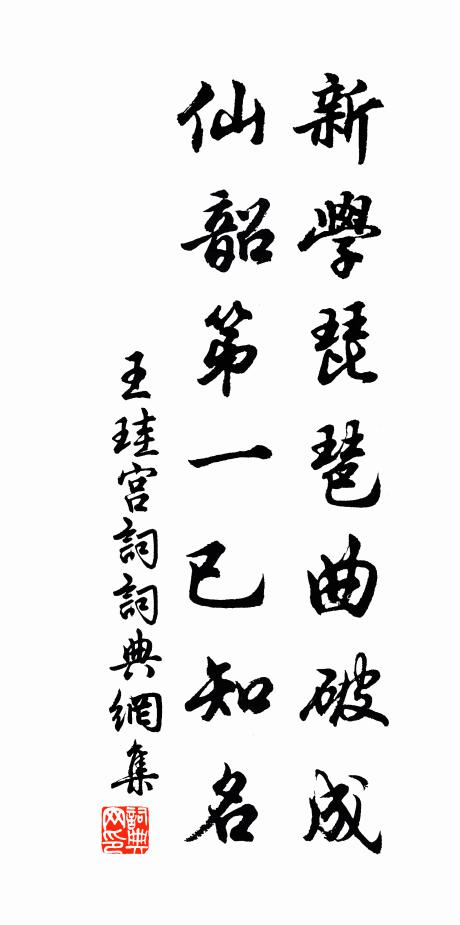 新學琵琶曲破成
仙韶第一已知名
王珪宮詞詞典網集
詞典网印